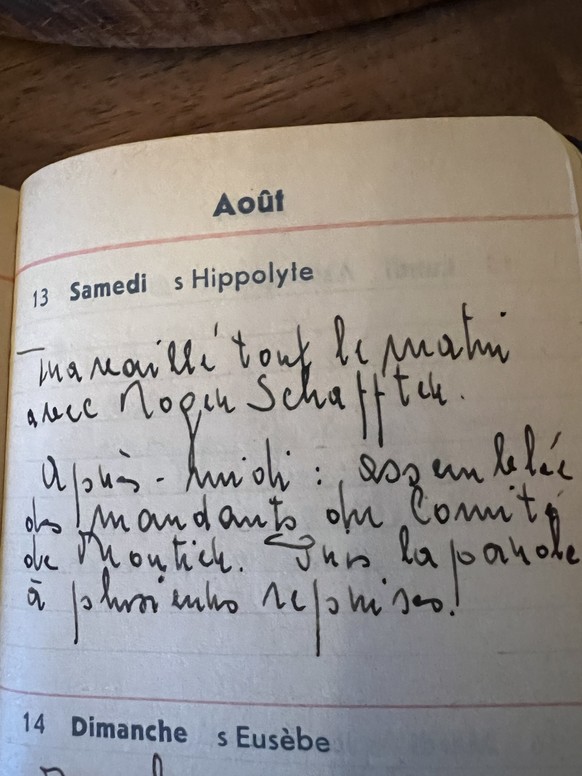 Août
13 Samedi s Hippolyte
Travaillé tout le matin
avec Roger Schaffter.
Après-midi : assemblée
des mandants du Comité
de Moutier. Pris la parole
à plusieurs reprises.
14 Dimanche s Eusèbe